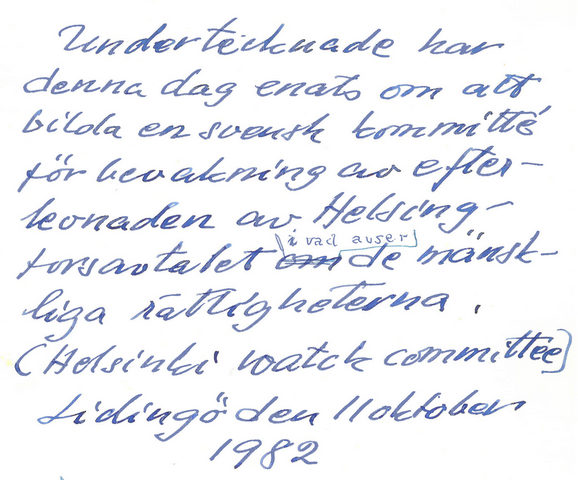 Undertecknade har
denna dag enats om att
bilda en svensk kommitté
för bevakning av efter-
levnaden av Helsing-
forsavtalet om i vad avser de mänsk-
liga rättigheterna.
(Helsinki watch committée)
Lidingö den 11 oktober
1982